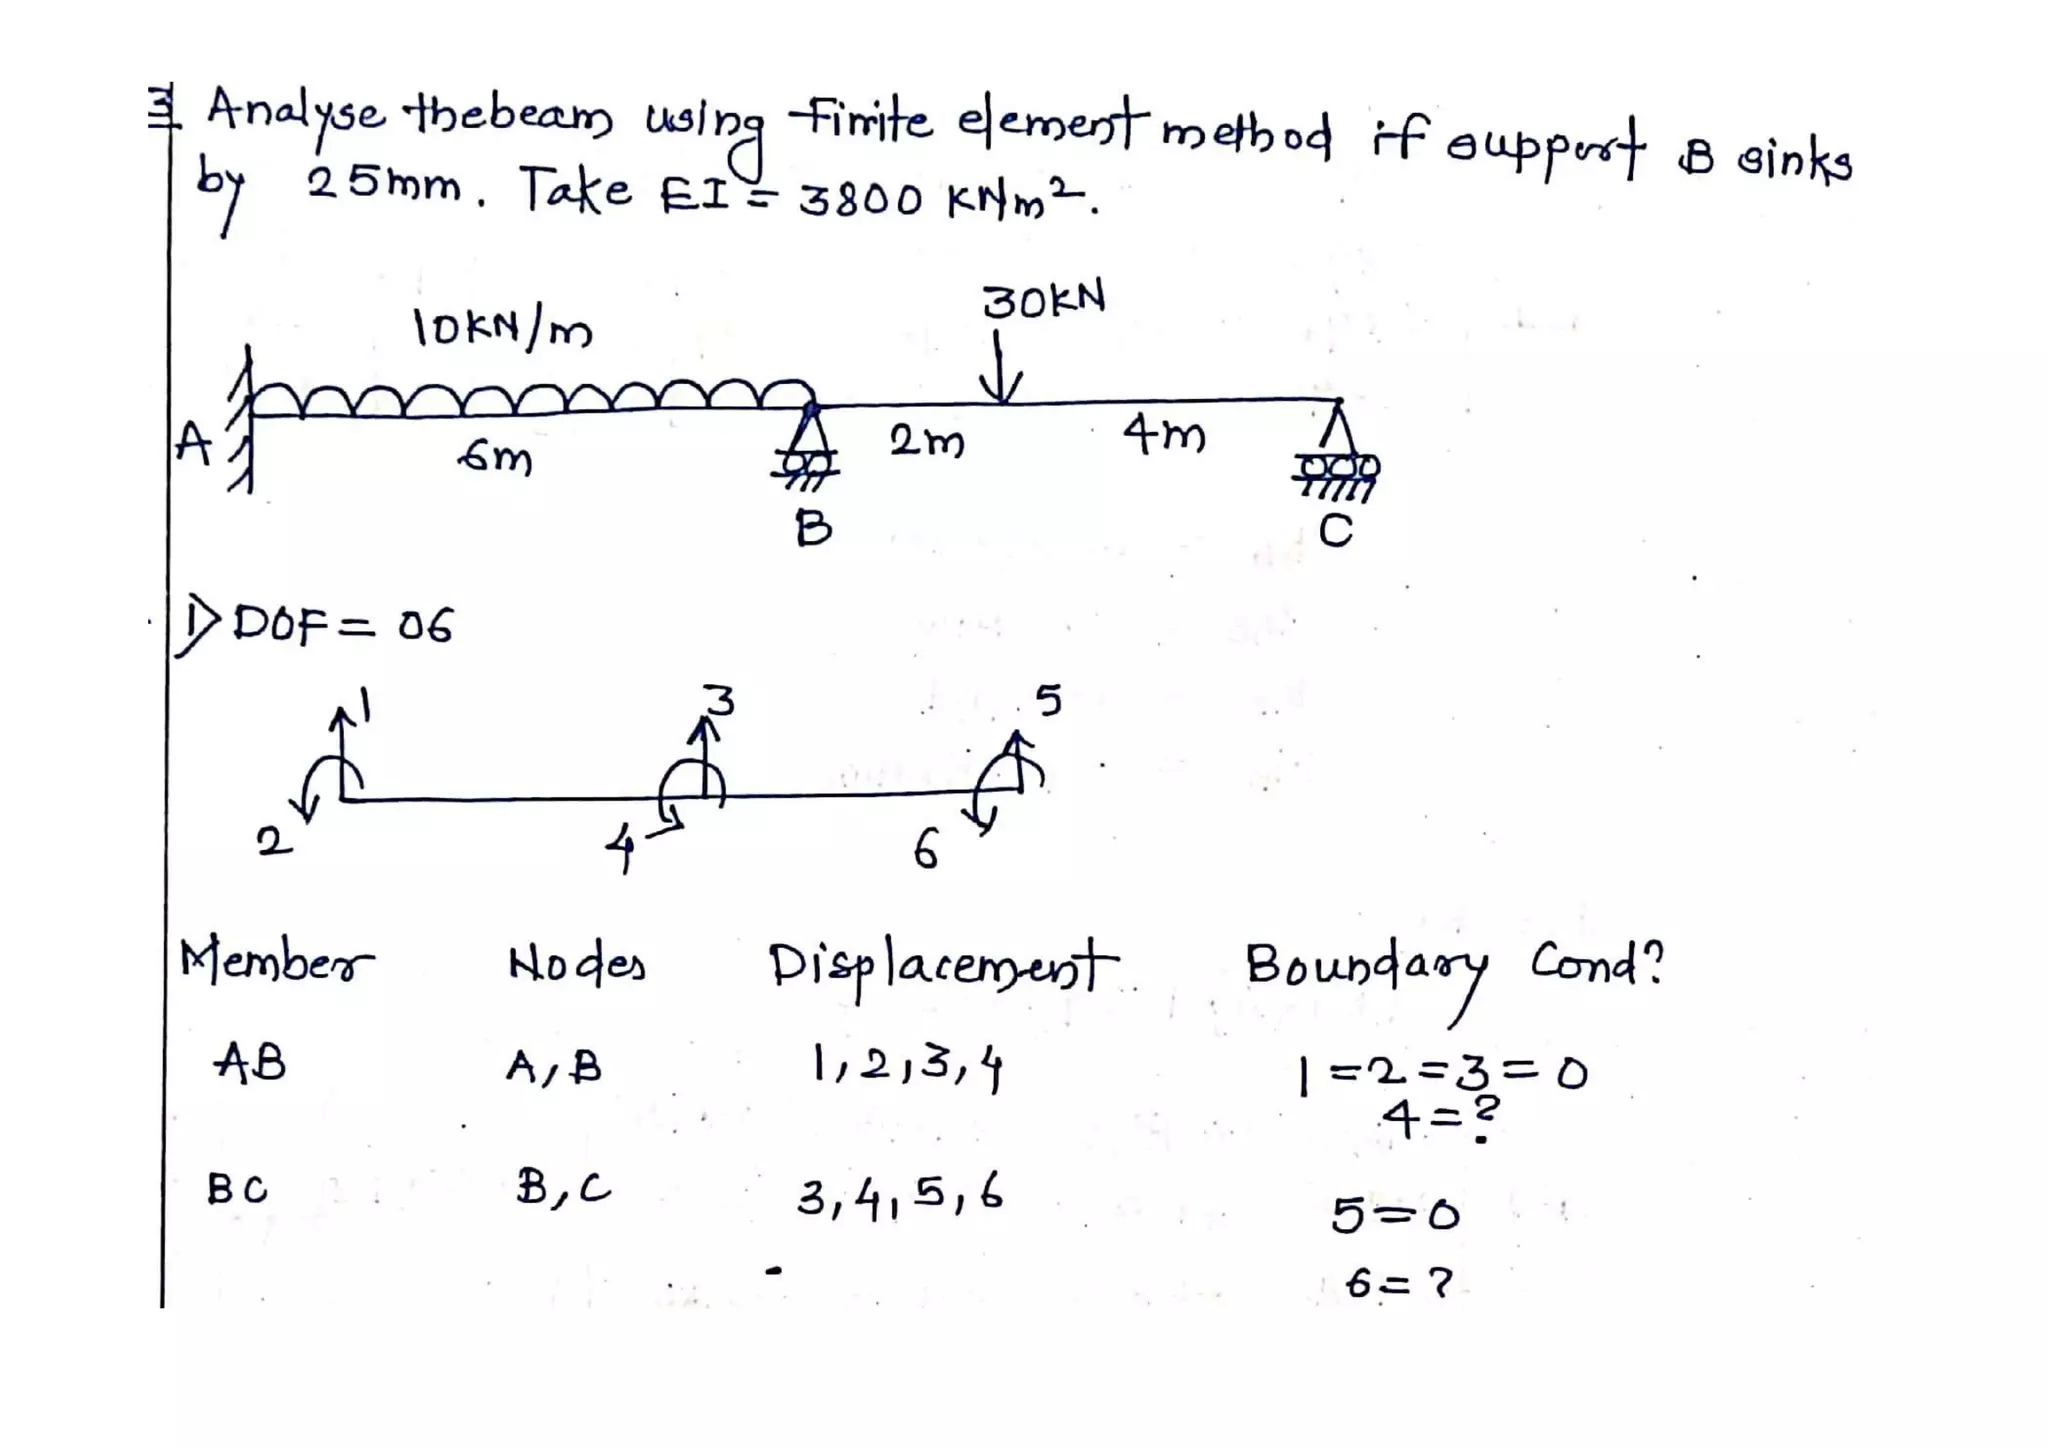 3 Analyse the beam using finite element method if support B sinks
by 25mm. Take EI = 3800 KNm².
30KN
10KN/m
A
6m
2m
4m
B
C
1) DOF = 06
1
3
5
2
4
6
Member Nodes Displacement Boundary Cond?
AB A,B 1,2,3,4 1=2=3=0
4=?
BC B,C 3,4,5,6 5=0
6=?